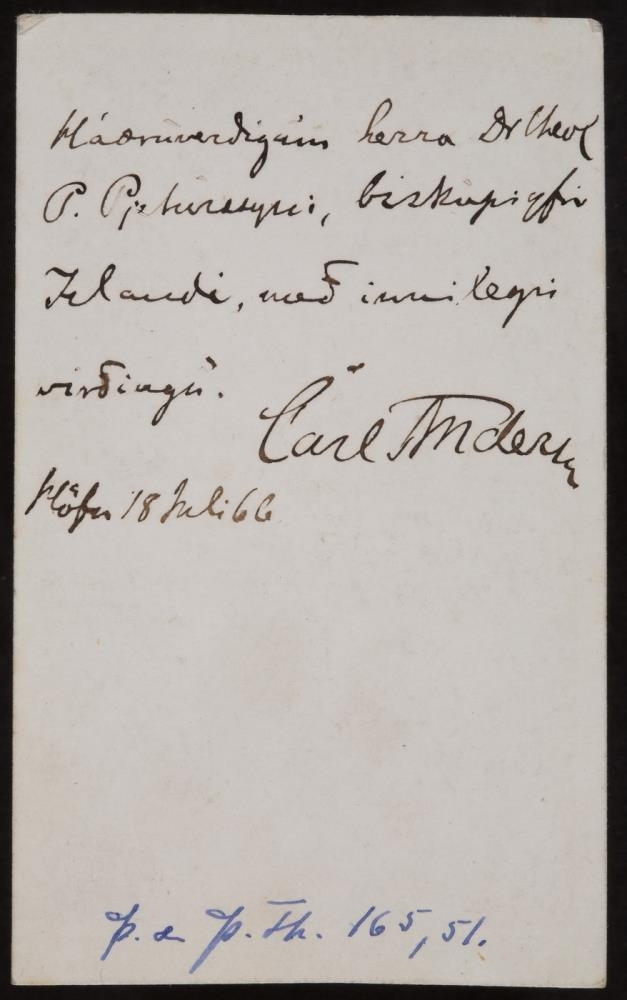 Háæruverdigum herra Dr theol
P. Pjeturssyni, biskupi yfir
Islandi, með innilegri
virðingu.
Carl Andersen
Höfn 18 Juli 66
Þ. æ Þ. Th. 165, 51.